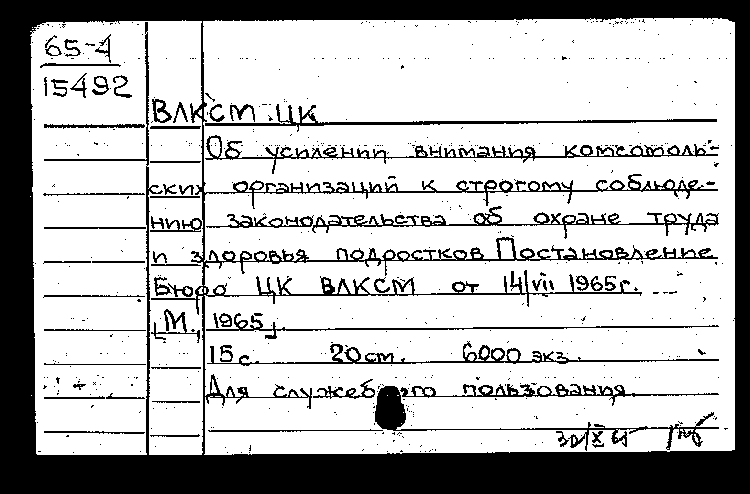 65-4
15492
ВЛКСМ. ЦК
Об усилении внимания комсомоль-
ских организаций к строгому соблюде-
нию законодательства об охране труда
и здоровья подростков Постановление
Бюро ЦК ВЛКСМ от 14/VII 1965г.
[М., 1965].
15 с. 20 см. 6000 экз.
Для служебного пользования.
30/X 65